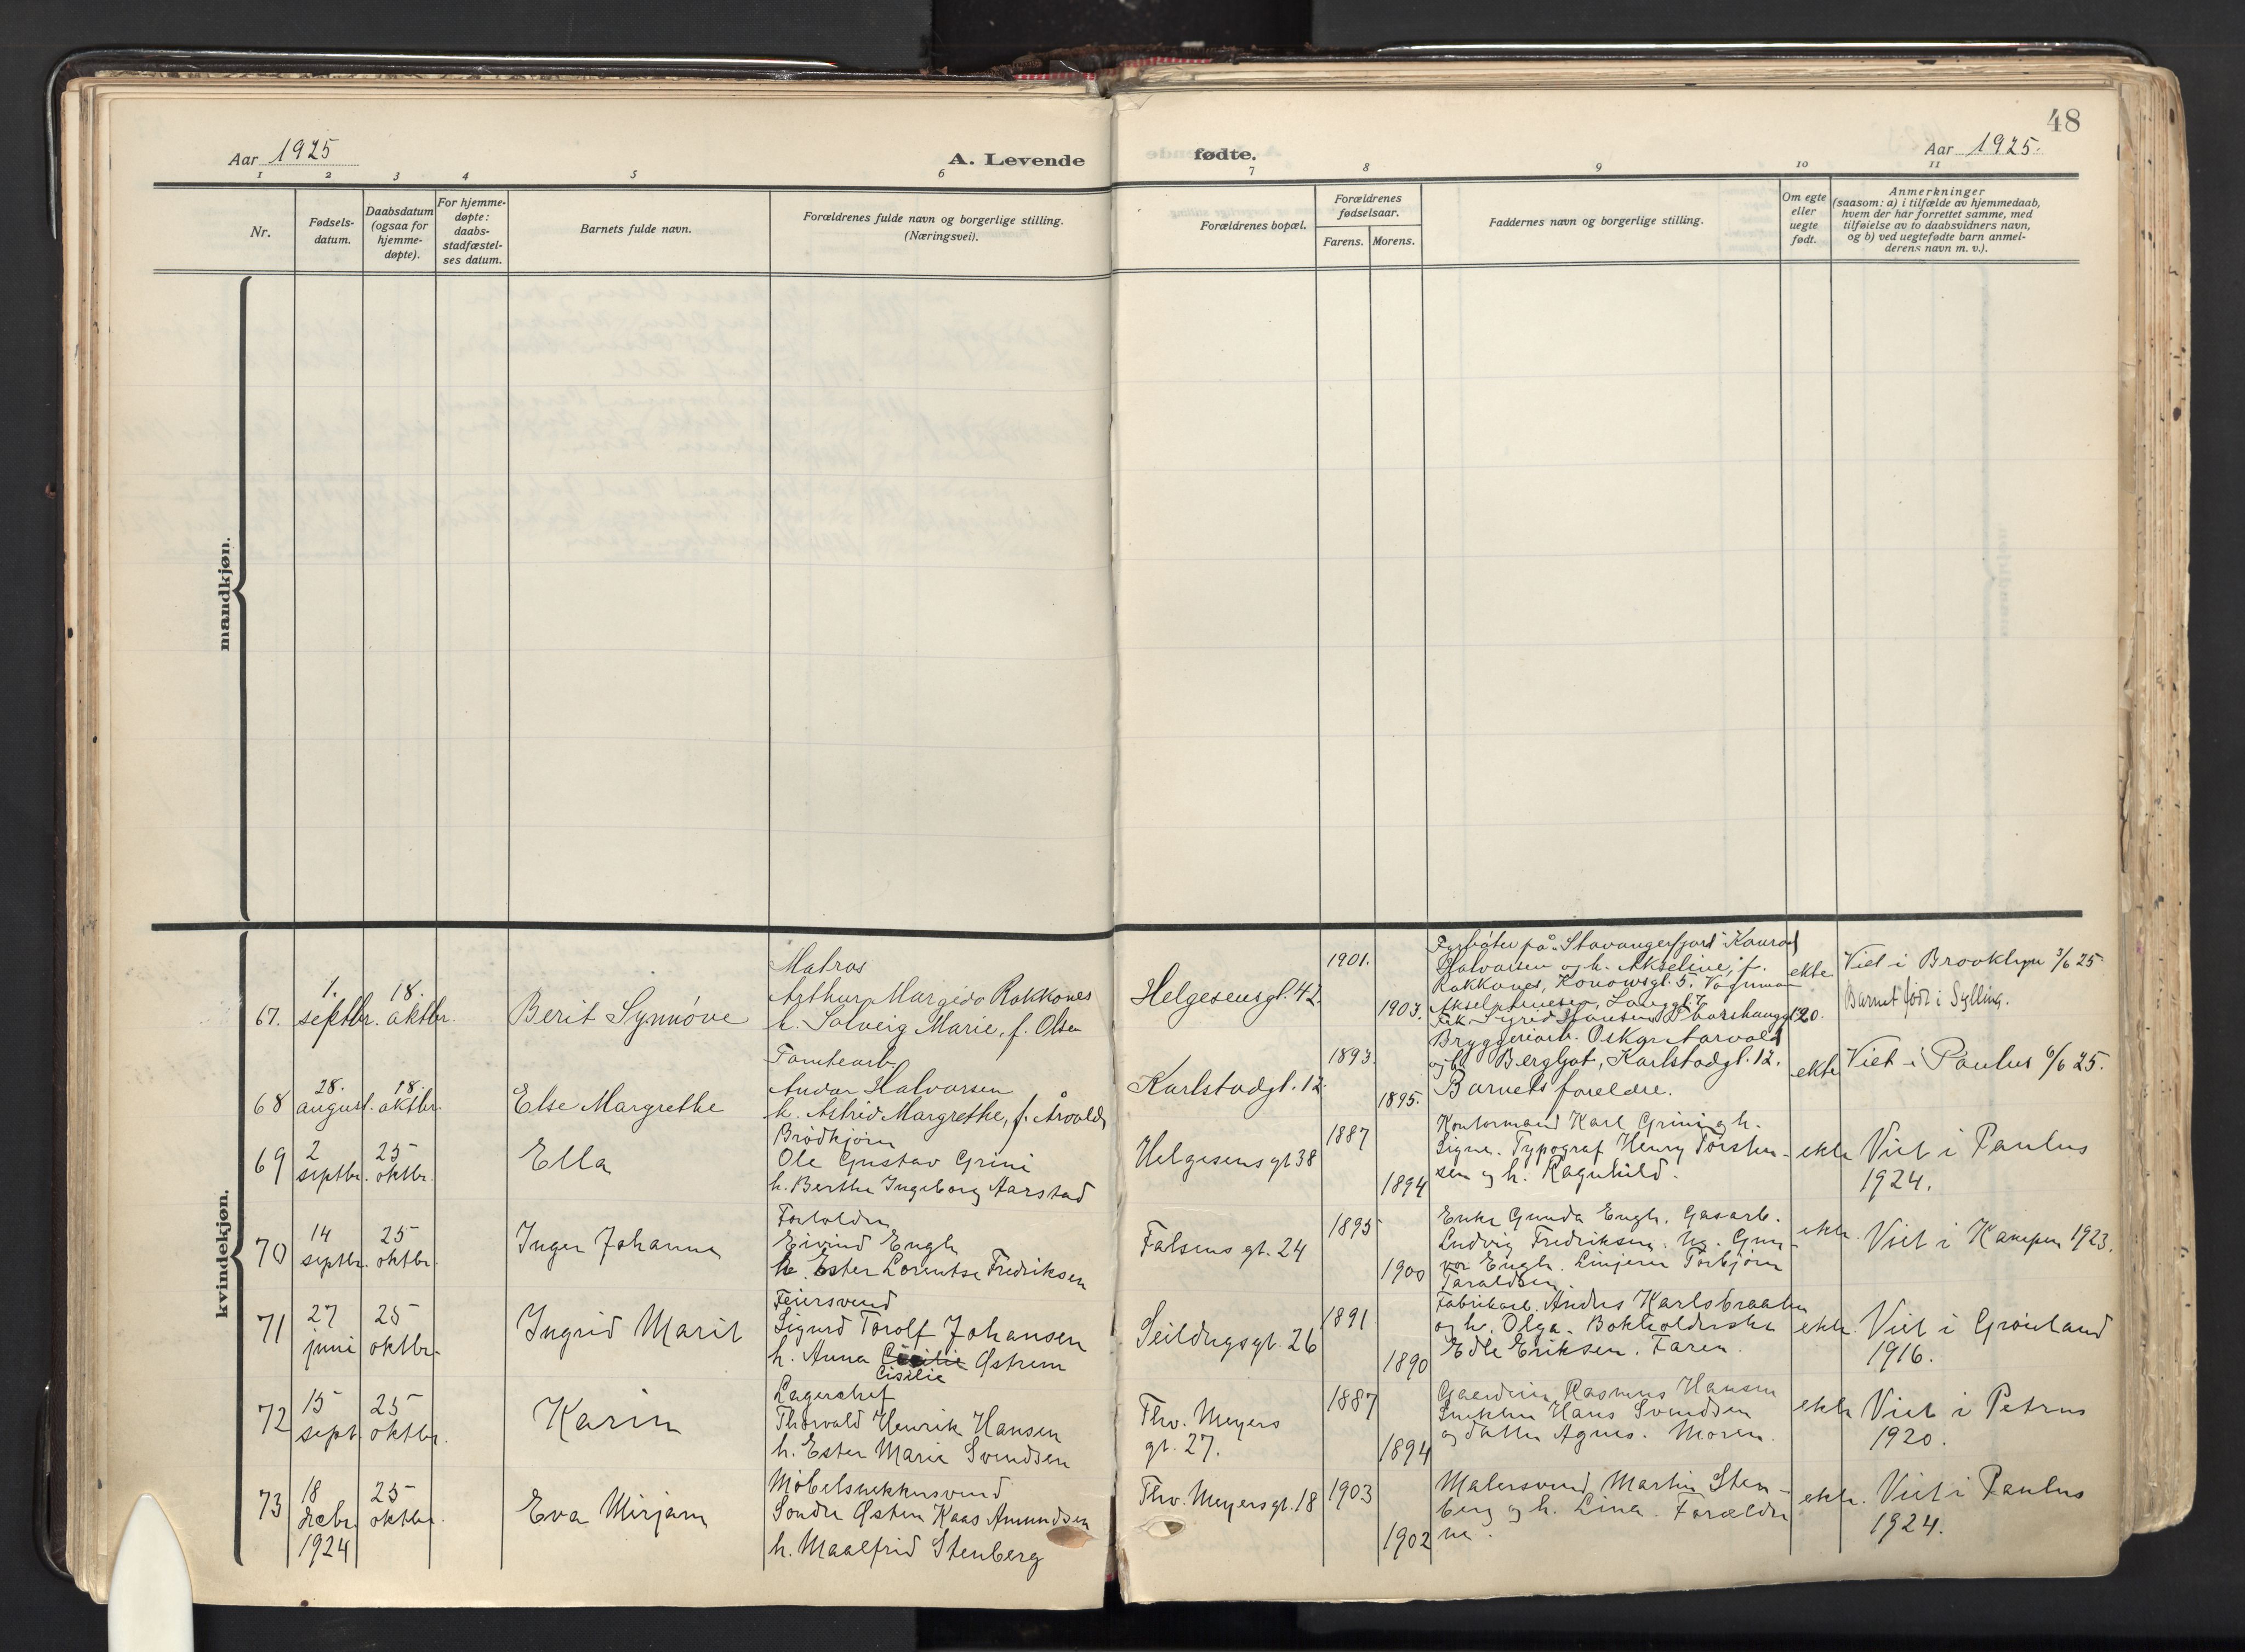 48
Aar 1925
A. Levende
fødte.
Aar 1925.
1
2
3
4
5
6
7
8
9
10
11
Nr.
Fødsels-
datum.
Daabsdatum
(ogsaa for
hjemme-
døpte).
For hjemme-
døpte:
daabs-
stadfæstel-
ses datum.
Barnets fulde navn.
Forældrenes fulde navn og borgerlige stilling.
(Næringsvei).
Forældrenes bopæl.
Forældrenes
fødselsaar.
Farens.
Morens.
Faddernes navn og borgerlige stilling.
Om egte
eller
uegte
født.
Anmerkninger
(saasom: a) i tilfælde av hjemmedaab,
hvem der har forrettet samme, med
tilføielse av to daabsvidners navn,
og b) ved uegtefødte barn anmel-
derens navn m. v.).
mandkjøn.
kvindekjøn.
67.
1.
septbr.
18.
oktbr.
Berit Synnöve
Matros
Arthur Margido Rokkones
h. Solveig Marie, f. Olsen
Helgesensgt. 42.
1901.
1903.
Fyrböter på "Stavangerfjord" Konrad
Halvorsen og h. Akseline, f.
Rokkones, Konowsgt. 5.
Aksel
Frk. Sigrid Hansen
120.
ekte
Viet i Brooklyn 3/6 25
Barnet födt i Sylling.
68
28.
august.
18.
oktbr.
Else Margrethe
Tomtearb.
Andor Halvorsen
h. Astrid Margrethe, f. Årvold
Karlstadgt. 12.
1893.
1895.
Bryggeriarb. Oskar Aarvold
og h. Bergljot, Karlstadgt. 12.
Barnets foreldre.
ekte
Viet i Paulus 6/6 25.
69
2
septbr.
25
oktbr.
Ella
Brödkjörer
Ole Gustav Grini
h. Berthe Ingeborg Aarstad
Helgesens gt 38
1887
1894
Kontormand Karl Grini og h.
Signe. Typograf Henry Torsten-
sen og h. Ragnhild.
ekte
Viet i Paulus
1924.
70
14
septbr.
25
oktbr.
Inger Johanne
Forlolder
Eivind Engh
h. Ester Lorentse Fredriksen
Falsens gt. 24
1895
1900
Enke Gunda Engh. Gasarb.
Ludvig Fredriksen. Ug. Gun-
vor Engh. Linjerer Torbjörn
Taraldsen.
ekte.
Viet i Kampen 1923.
71
27
juni
25
oktbr.
Ingrid Marit
Feiersvend
Sigurd Torolf Johansen
h. Anna Östrem
Cisilie
Seildugsgt. 26
1891
1890
Fabrikarb. Anders Karlsbraaten
og h. Olga. Bokholderske
Edle Eriksen. Faren.
ekte.
Viet i Grönland
1916.
72
15
sept.
25
oktbr.
Karin
Lagerchef
Thorvald Henrik Hansen
h. Ester Marie Svendsen
Thv. Meyers
gt. 27.
1887
1894
Gaardeier Rasmus Hansen
Snekker Hans Svendsen
og datter Agnes. Moren.
ekte
Viet i Petrus
1920.
73
18
decbr.
1924
25
oktbr.
Eva Mirjam
Möbelsnekkersvend
Sondre Østen Kaas Amundsen
h. Maalfrid Stenberg
Thv. Meyers gt. 18
1903
1902
Malersvend Martin Sten-
berg og h. Lina. Forældre
ne.
ekte.
Viet i Paulus
1924.